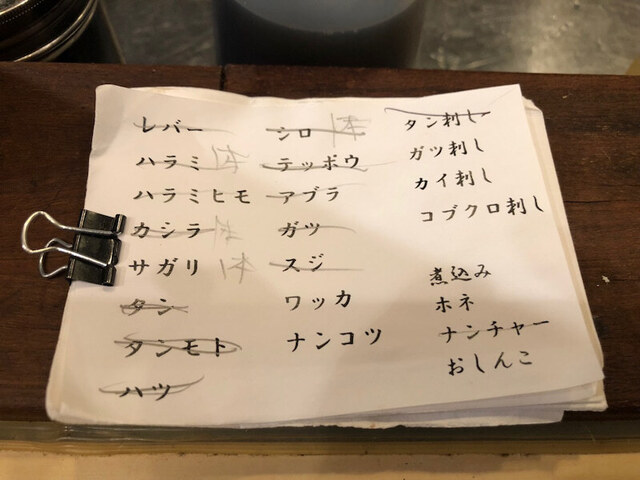 レバー
ハラミ 1本
ハラミヒモ
カシラ 1本
サガリ 1本
タン
タンモト
ハツ
シロ 1本
テッポウ
アブラ
ガツ
スジ
ワッカ
ナンコツ
タン刺し
ガツ刺し
カイ刺し
コブクロ刺し
煮込み
ホネ
ナンチャー
おしんこ